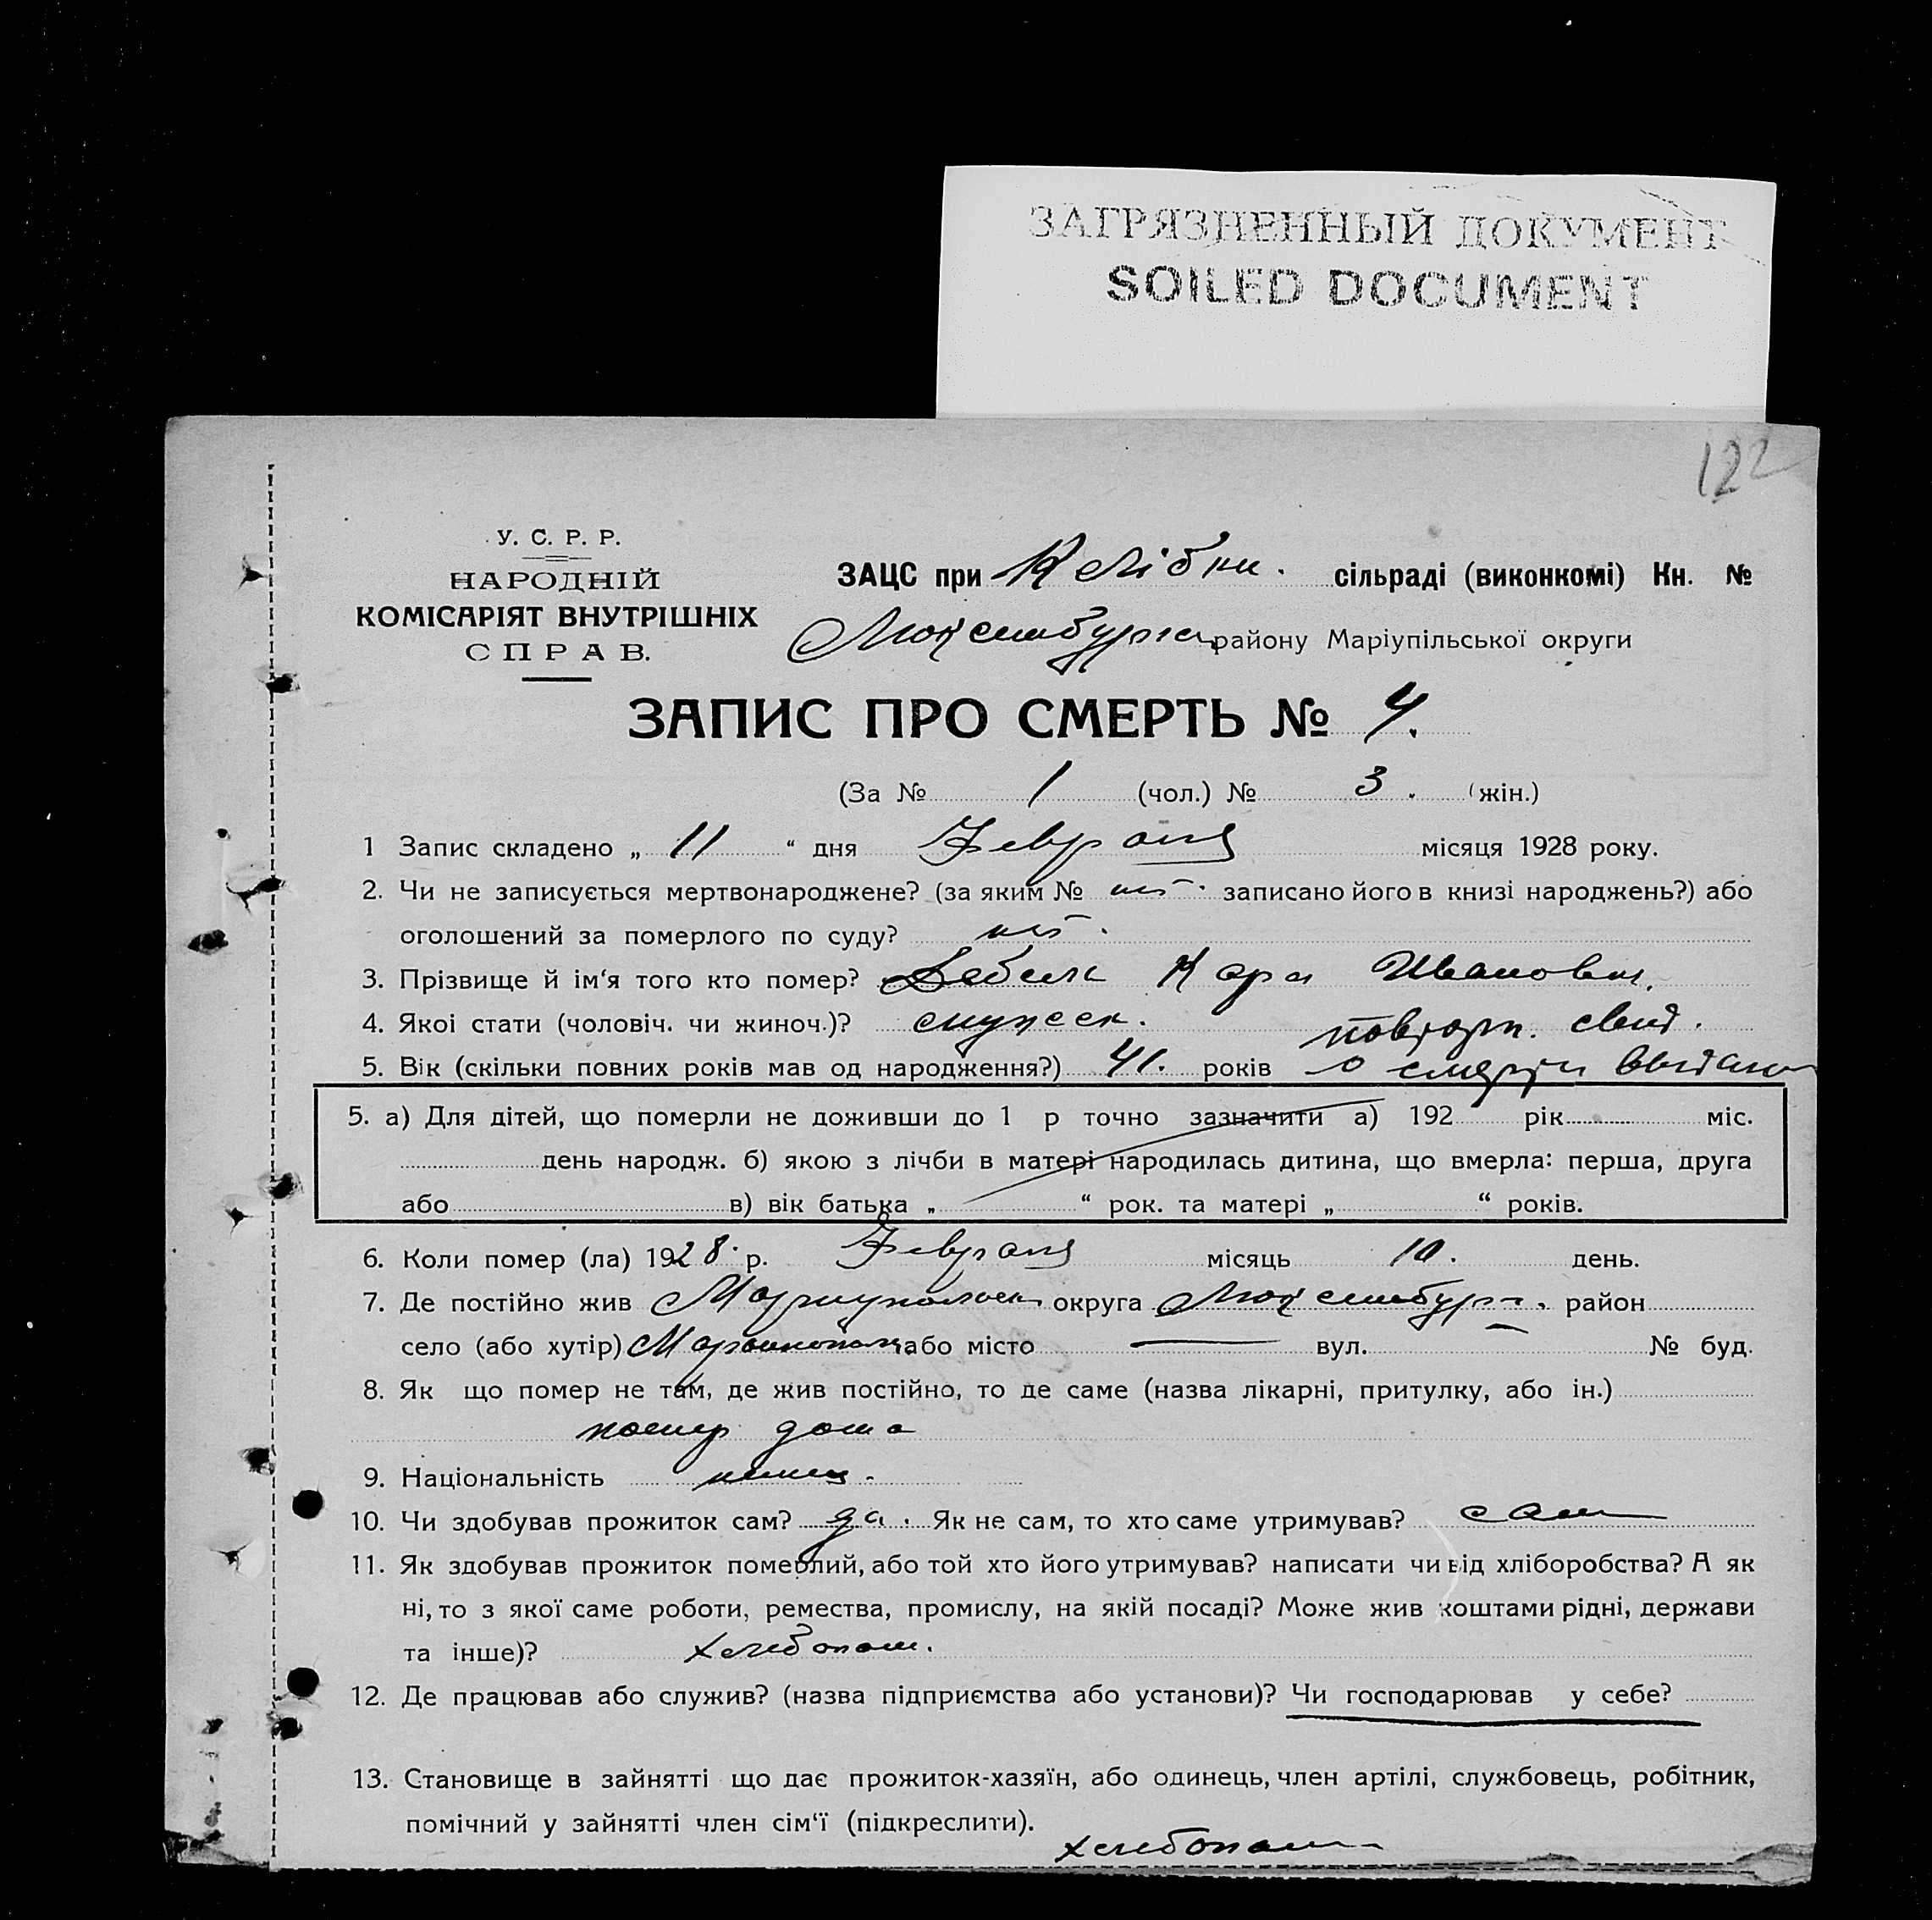 ЗАГРЯЗНЕННЫЙ ДОКУМЕНТ
SOILED DOCUMENT
122
У. С. Р. Р.
НАРОДНІЙ
КОМІСАРІЯТ ВНУТРІШНІХ
СПРАВ.
ЗАЦС при сільраді (виконкомі) Кн. №
району Маріупільської округи
ЗАПИС ПРО СМЕРТЬ № 4.
(За № 1 (чол.) № 3. (жін.)
1 Запис складено „ 11 “ дня Февраля місяця 1928 року.
2. Чи не записується мертвонароджене? (за яким № нет. записано його в книзі народжень?) або
оголошений за померлого по суду? нет.
3. Прізвище й ім‘я того кто помер? Карл Иванович.
4. Якоі стати (чоловіч. чи жиноч.)? мужеск. повторн. свид.
5. Вік (скільки повних років мав од народження?) 41. років о смерти выдано
5. а) Для дітей, що померли не доживши до 1 р точно зазначити а) 192 рік міс.
день народж. б) якою з лічби в матері народилась дитина, що вмерла: перша, друга
або в) вік батька „ “ рок. та матері „ “ років.
6. Коли помер (ла) 1928. р. Февраля місяць 10. день.
7. Де постійно жив Мариупольск округа Люксембург. район
село (або хутір) або місто — вул. № буд.
8. Як що помер не там, де жив постійно, то де саме (назва лікарні, притулку, або ін.)
помер дома
9. Національність немец.
10. Чи здобував прожиток сам? да. Як не сам, то хто саме утримував? сам
11. Як здобував прожиток померлий, або той хто його утримував? написати чи від хліборобства? А як
ні, то з якої саме роботи, ремества, промислу, на якій посаді? Може жив коштами рідні, держави
та інше)? хлебопаш.
12. Де працював або служив? (назва підприємства або установи)? Чи господарював у себе?
13. Становище в зайнятті що дає прожиток-хазяїн, або одинець, член артілі, службовець, робітник,
помічний у зайнятті член сім‘ї (підкреслити).
хлебопаш